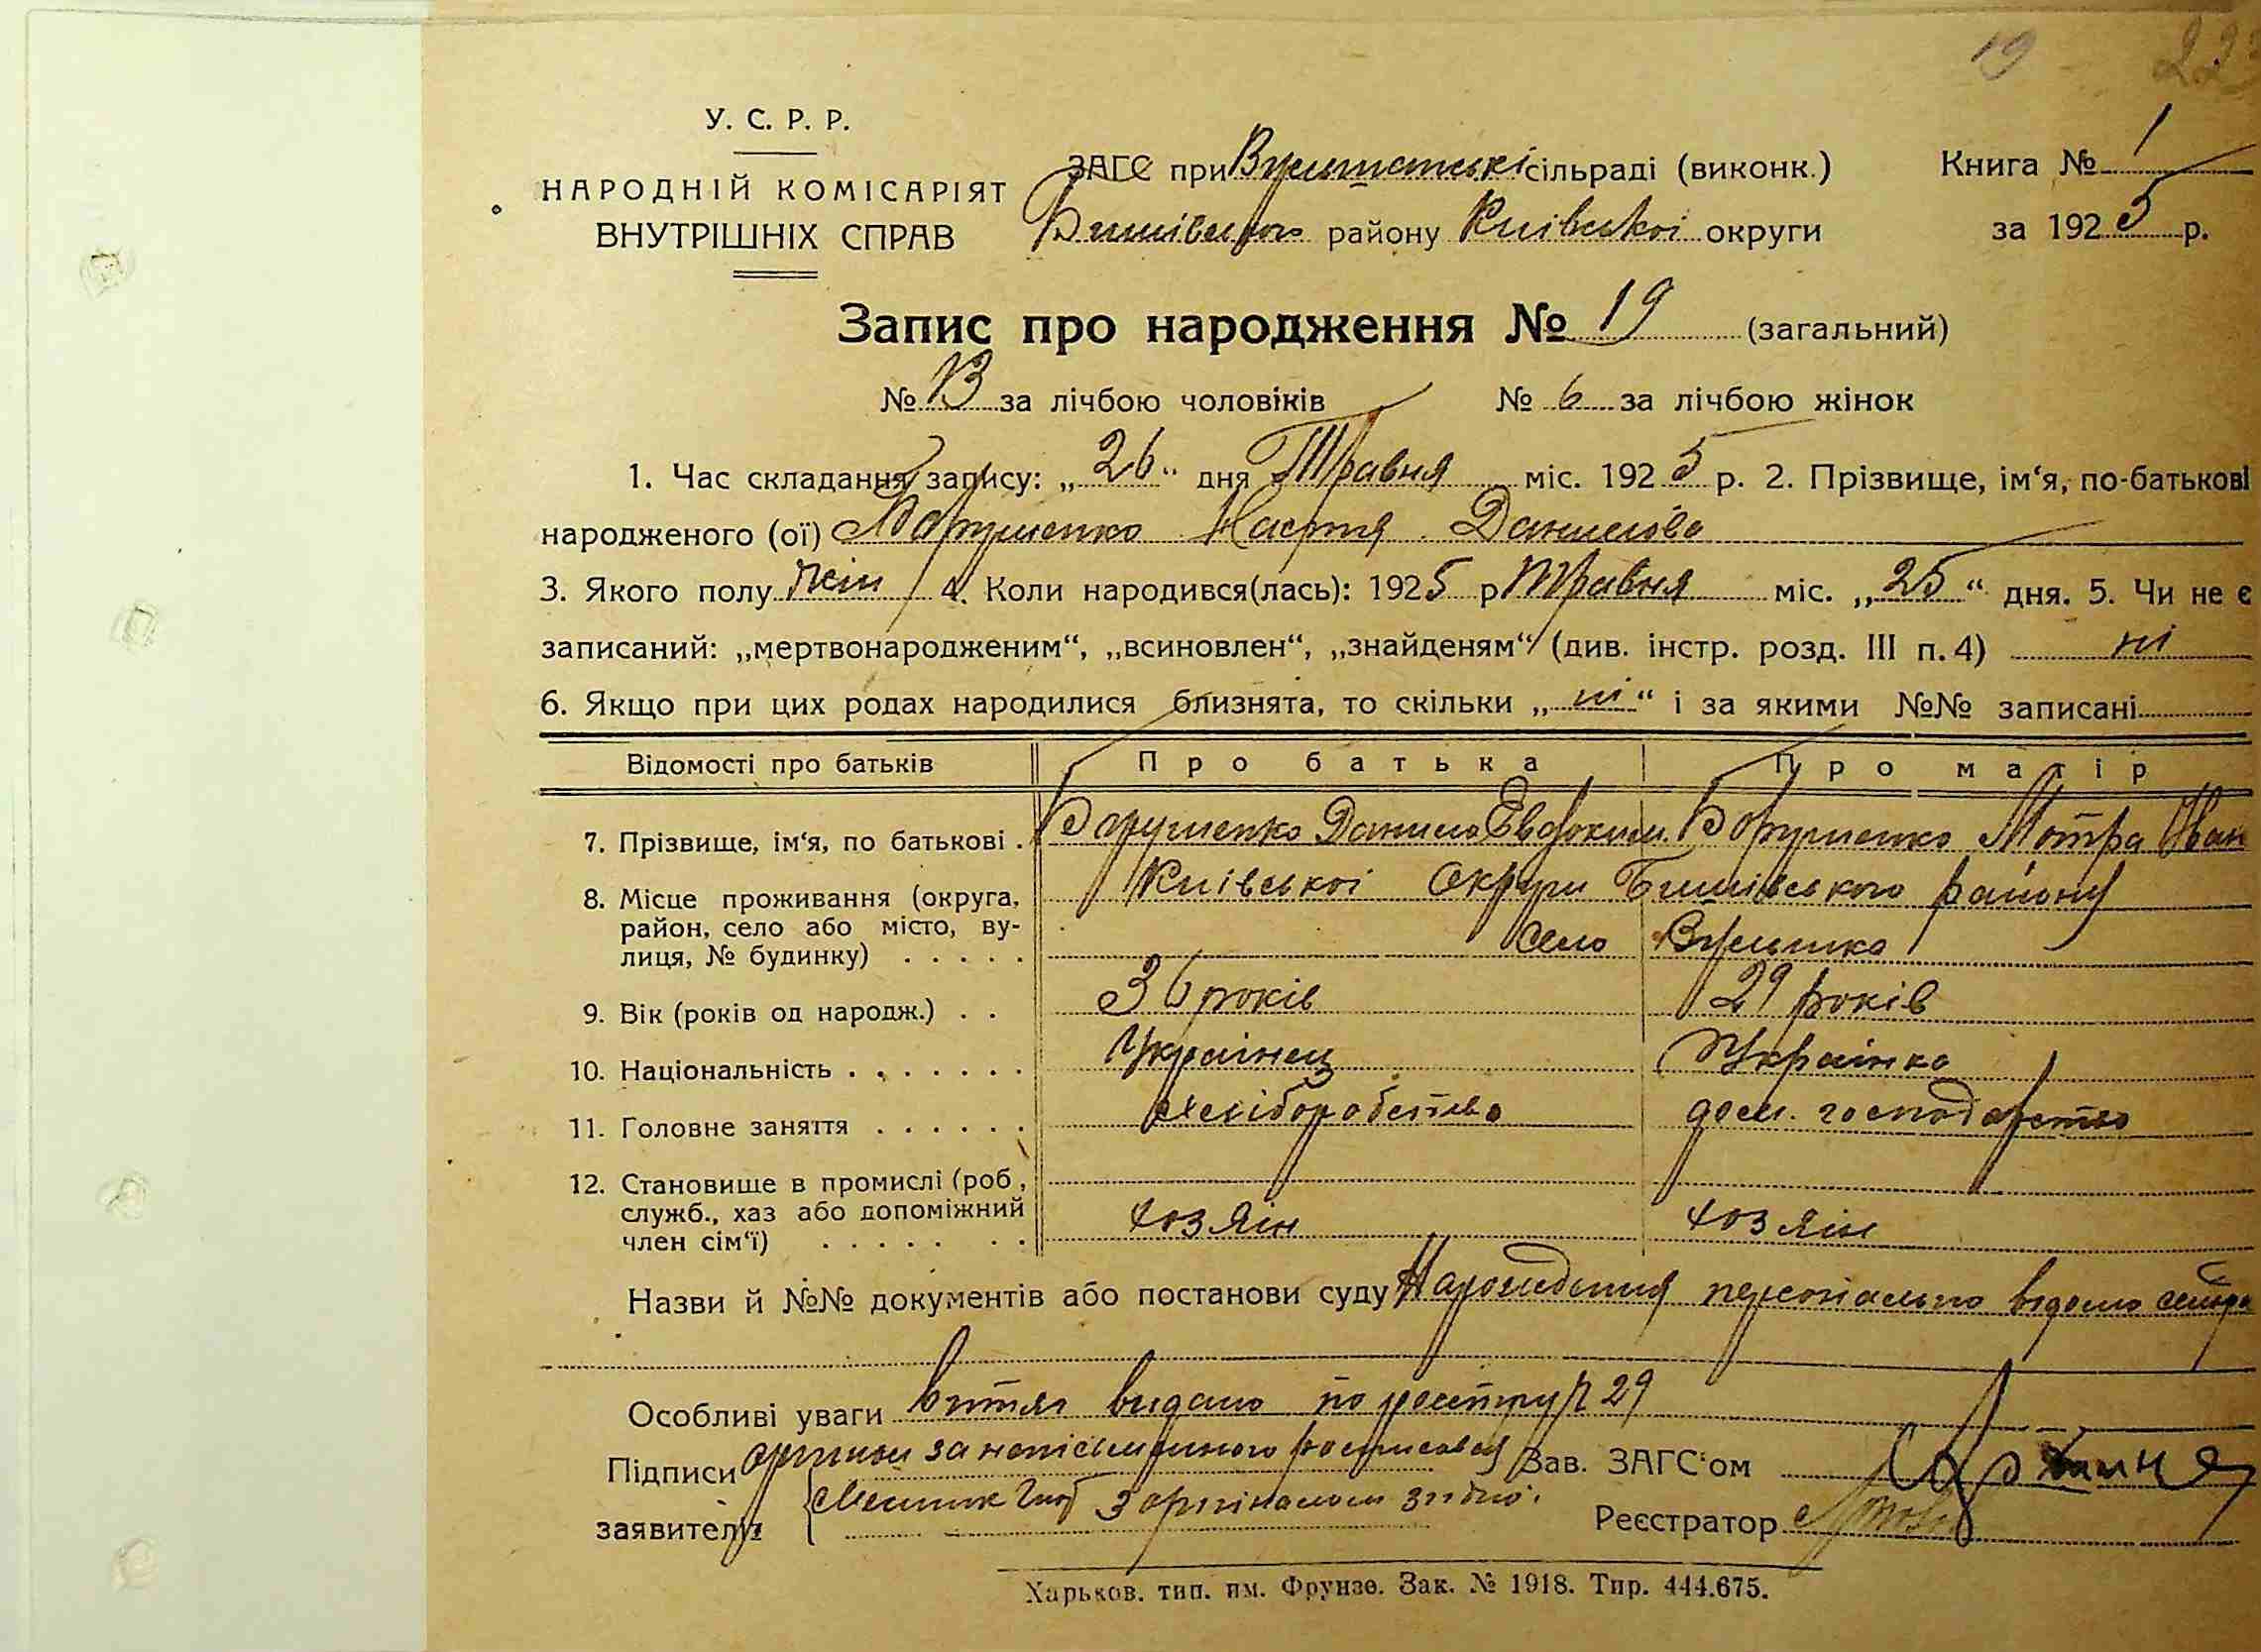 19 223
У. С. Р. Р.
НАРОДНІЙ КОМІСАРІЯТ
ВНУТРІШНІХ СПРАВ
ЗАГС при сільраді (виконк.)
Бишівського району Київської округи
Книга № 1
за 1925 р.
Запис про народження № 19 (загальний)
№ 13 за лічбою чоловіків № 6 за лічбою жінок
1. Час складання запису: „26“ дня Травня міс. 1925 р. 2. Прізвище, ім‘я, по-батькові
народженого (ої) Настя Данилова
3. Якого полу жін 4. Коли народився(лась): 1925 р Травня міс. „25“ дня. 5. Чи не є
записаний: „мертвонародженим“, „всиновлен“, „знайденям“ (див. інстр. розд. III п. 4) ні
6. Якщо при цих родах народилися близнята, то скільки „ні“ і за якими №№ записані
Відомості про батьків Про батька Про матір
7. Прізвище, ім‘я, по батькові . Данило Евдоким. Мотра Іван
8. Місце проживання (округа, Київської Округи Бишівського району
район, село або місто, ву- село
лиця, № будинку) . . . . .
9. Вік (років од народж.) . . 36 років 29 років
10. Національність . . . . . . . Українец Українка
11. Головне заняття . . . . . . хліборобство дом. господарство
12. Становище в промислі (роб.,
служб., хаз або допоміжний хозяін хозяін
член сім‘ї) . . . . . . .
Назви й №№ документів або постанови суду Нарождения персонально відомо
Особливі уваги витяг видано по реєстру № 29
Підписи за неписьменного росписався Зав. ЗАГС‘ом
заявителя з оригіналом згідно. Реєстратор
Харьков. тип. им. Фрунзе. Зак. № 1918. Тир. 444.675.